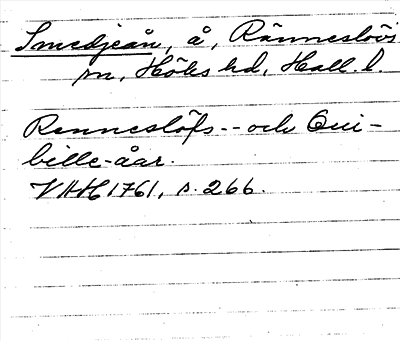 Smedjeån, å, Ränneslövs
sn, Höks hd, Hall. l.
Renneslöfs-- och Qui-
bille-åar.
VHH 1761, s. 266.